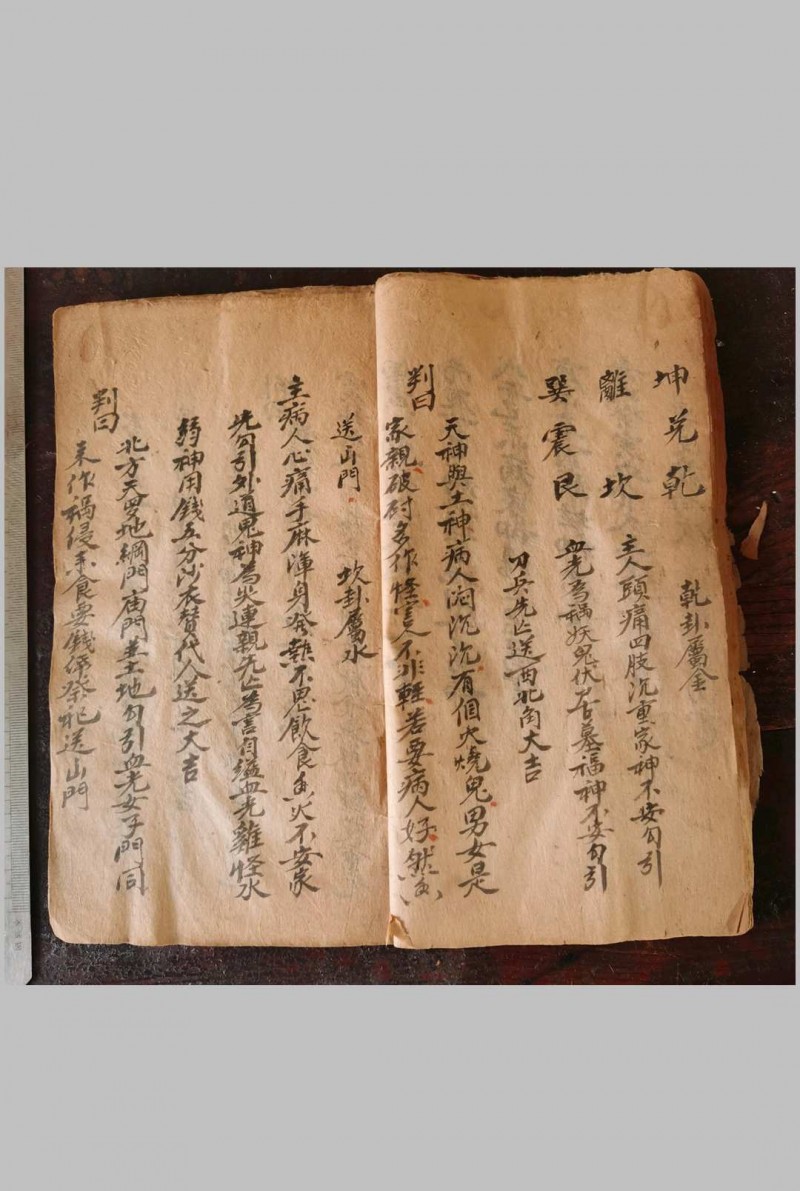 坤兌乾
離 坎
巽震艮
乾卦屬金
主人頭痛四肢沉重家神不安勾引
血光為禍妖鬼伏屍古墓福神不安勾引
刀兵先亡送西北角大吉
天神與土神病人沉沉有個火燒鬼男女是
判曰
家親破財多作怪害人不非輕若要病人好
送山門
坎卦屬水
主病人心痛手麻渾身發熱不思飲食香火不安家
先勾引外道鬼神為災連親先亡為言自縊血光雞怪水
弱神用錢五分沙衣替代人送之大吉
北方天罗地網門庙門並土地勾引血光女子門同
判曰
來作禍侵求食要錢保祭祀送山門